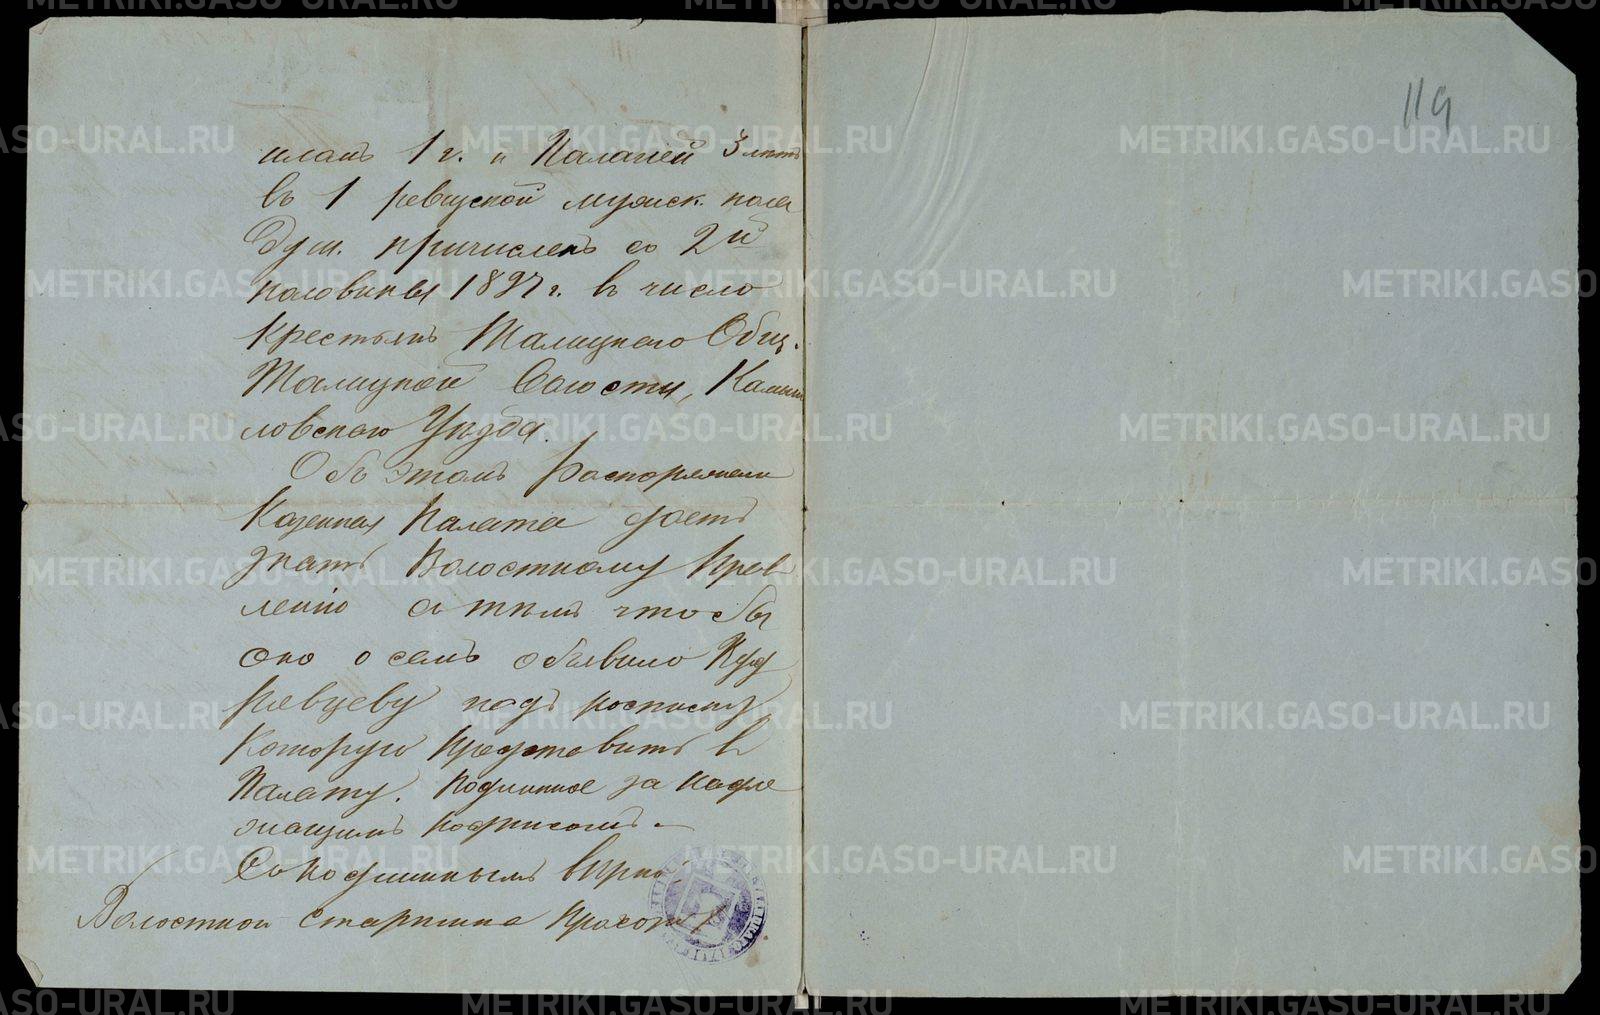 119
иломъ 1 г. и Палагіей 3 лѣтъ
въ 1 ревизской мужск. пола
душ. причисленъ со 2й
половины 1897 г. въ число
крестьянъ Талицкаго Общ.
Талицкой Волости, Камыш
ловскаго Уѣзда.
Объ этомъ распоряженіи
Казенная Палата даетъ
знать Волостному Прав
ленію съ тѣмъ чтобы
оно о семъ объявило Куд
рявцеву подъ росписку
которую представить въ
Палату. Подлинное за надле
жащимъ подписомъ.
Съ подлиннымъ вѣрно
Волостной Старшина
METRIKI.GASO-URAL.RU